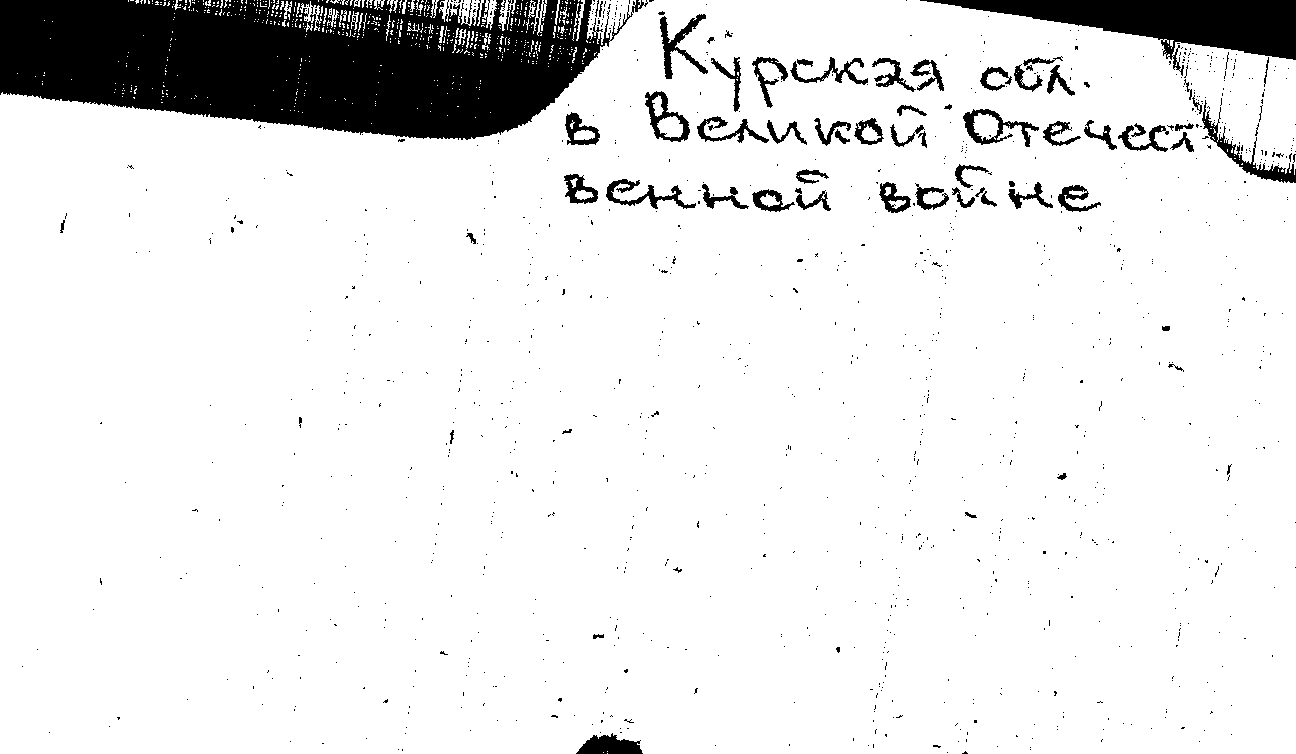 Курская обл.
в Великой Отечест
венной войне